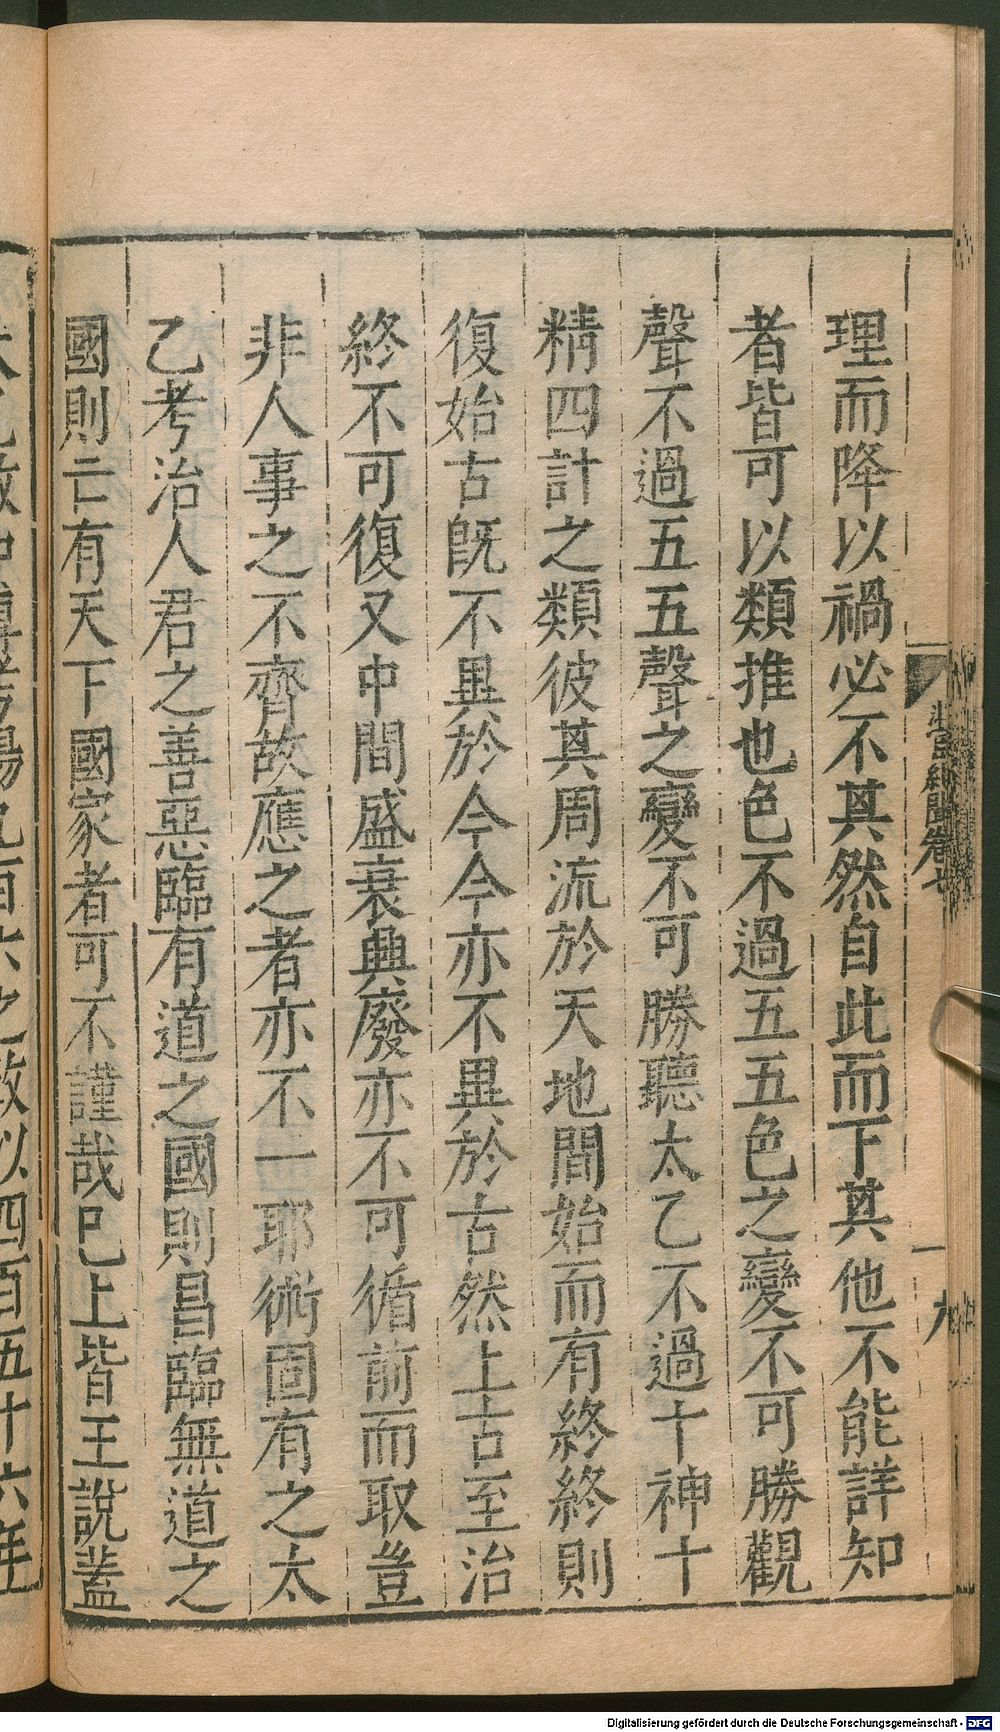 理而降以禍必不其然自此而下其他不能詳知
者皆可以類推也色不過五五色之變不可勝觀
聲不過五五聲之變不可勝聽太乙不過十神十
精四計之類彼其周流於天地間始而有終終則
復始古旣不異於今今亦不異於古然上古至治
終不可復又中間盛衰興廢亦不可循前而取豈
非人事之不齊故應之者亦不一耶術固有之太
乙考治人君之善惡臨有道之國則昌臨無道之
國則亡有天下國家者可不謹哉已上皆王說蓋
卷七
九
之數以四百五十六年
Digitalisierung gefördert durch die Deutsche Forschungsgemeinschaft - DFG